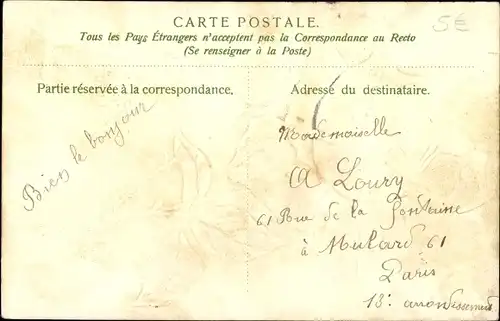 CARTE POSTALE.
5€
Tous les Pays Étrangers n'acceptent pas la Correspondance au Recto
(Se renseigner à la Poste)
Partie réservée à la correspondance,
Adresse du destinataire.
Bien le bonjour
Mademoiselle
A Loury
61 Rue de la Fontaine
à Mulard 61
Paris
13e arrondissement